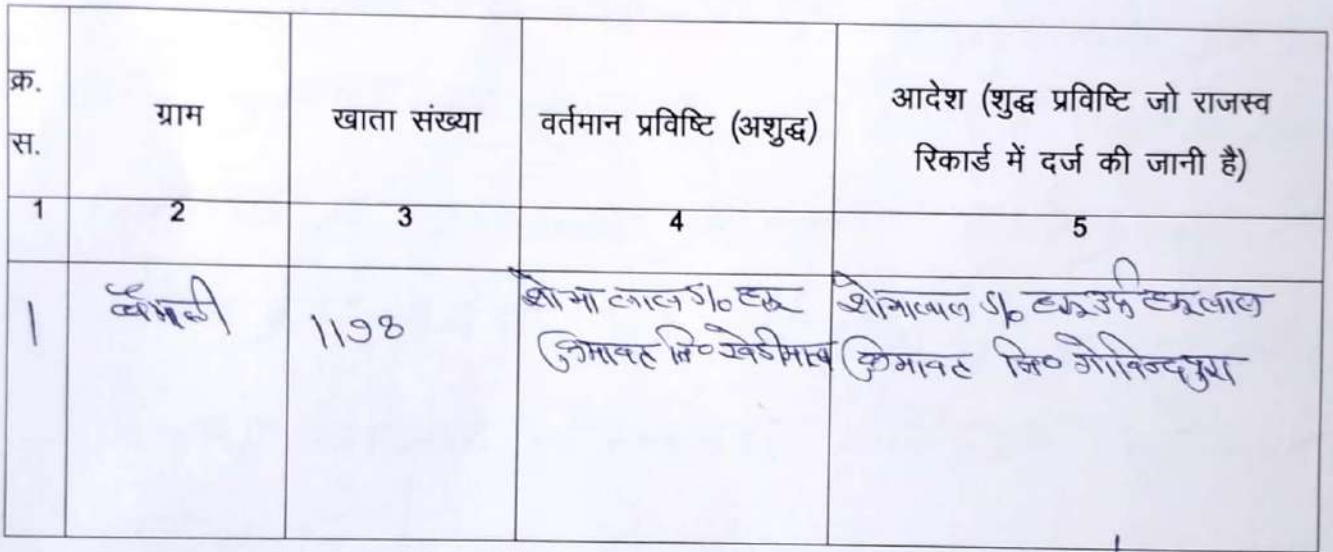 क्र. स.
ग्राम
खाता संख्या
वर्तमान प्रविष्टि (अशुद्ध)
आदेश (शुद्ध प्रविष्टि जो राजस्व
रिकार्ड में दर्ज की जानी है)
1 2 3 4 5
1
शोभालाल S/o
कुमावत नि०
शोभालाल S/o उर्फ
कुमावत नि० गोविन्दपुरा